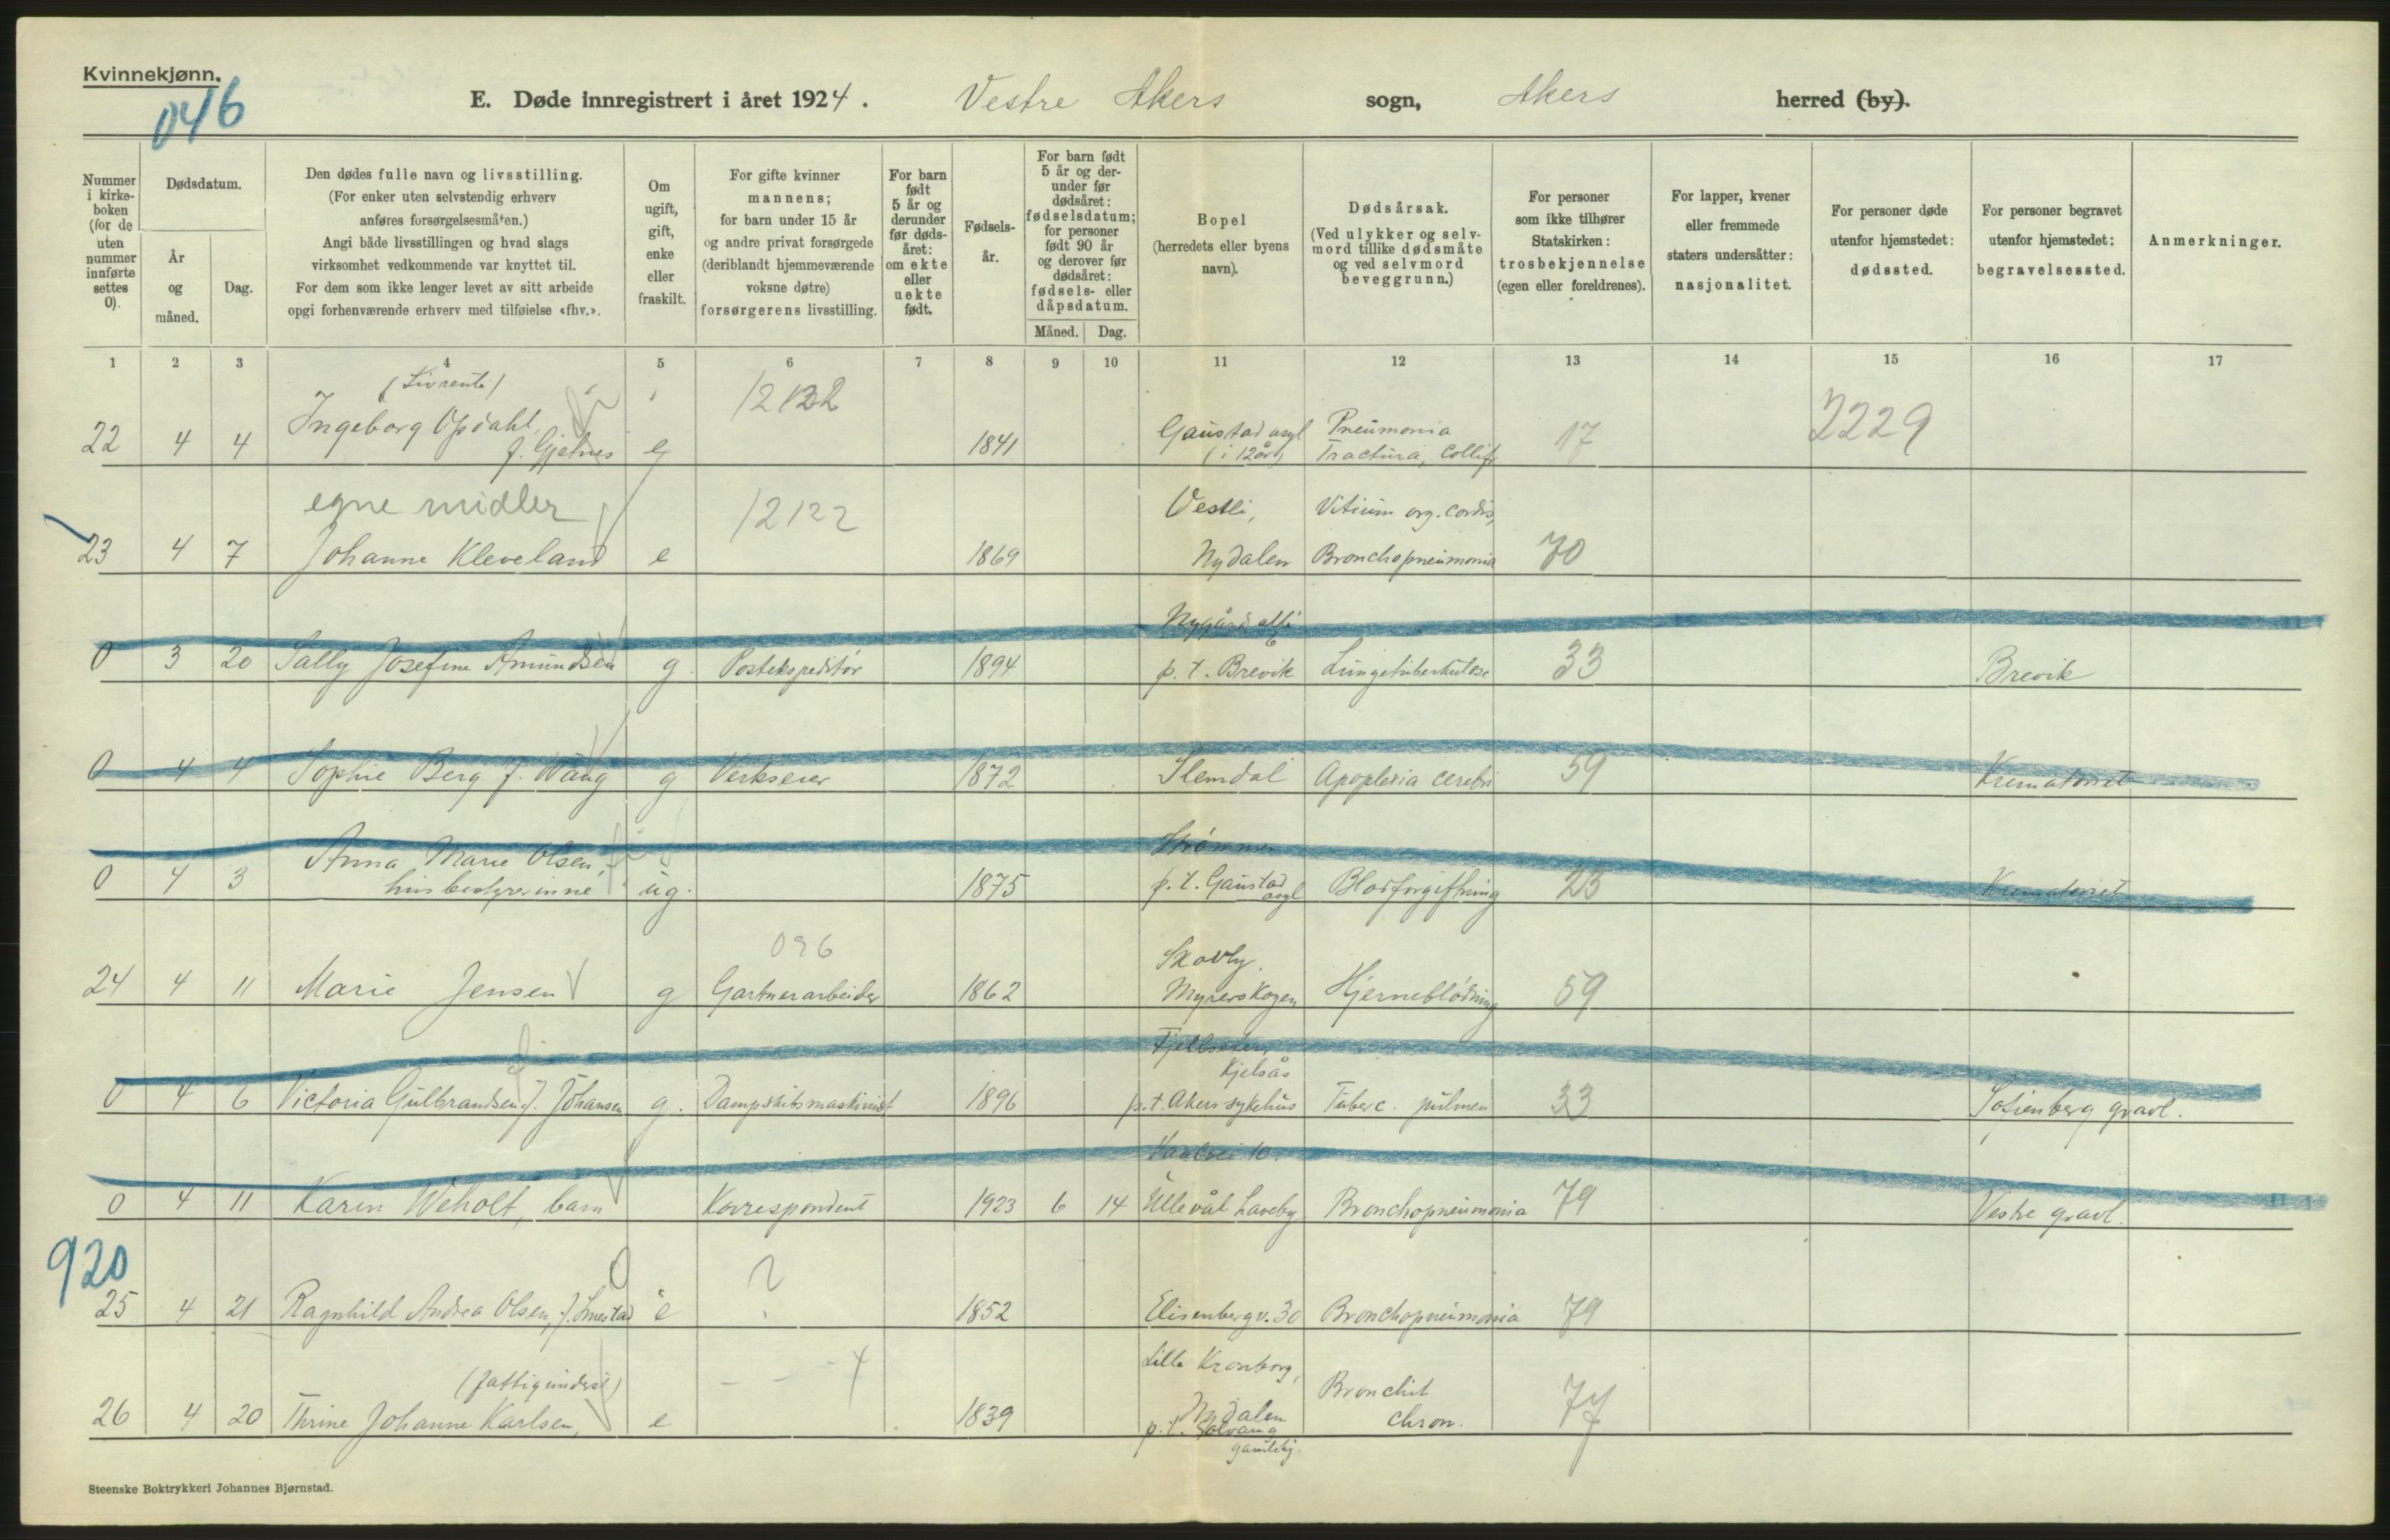 Kvinnekjønn.
046
E. Døde innregistrert i året 1924. Vestre Akers sogn, Akers herred (by).
Nummer i kirkeboken (for de uten nummer innførte settes 0).
Dødsdatum.
År og måned.
Dag.
Den dødes fulle navn og livsstilling. (For enker uten selvstendig erhverv anføres forsørgelsesmåten.) Angi både livsstillingen og hvad slags virksomhet vedkommende var knyttet til. For dem som ikke lenger levet av sitt arbeide opgi forhenværende erhverv med tilføielse «fhv.».
Om ugift, gift, enke eller fraskilt.
For gifte kvinner mannens; for barn under 15 år og andre privat forsørgede (deriblandt hjemmeværende voksne døtre) forsørgerens livsstilling.
For barn født 5 år og derunder før dødsåret: om ekte eller uekte født.
Fødselsår.
For barn født 5 år og derunder før dødsåret: fødselsdatum; for personer født 90 år og derover før dødsåret: fødsels- eller dåpsdatum.
Måned. Dag.
Bopel (herredets eller byens navn).
Dødsårsak. (Ved ulykker og selvmord tillike dødsmåte og ved selvmord beveggrunn.)
For personer som ikke tilhører Statskirken: trosbekjennelse (egen eller foreldrenes).
For lapper, kvener eller fremmede staters undersåtter: nasjonalitet.
For personer døde utenfor hjemstedet: dødssted.
For personer begravet utenfor hjemstedet: begravelsessted.
Anmerkninger.
1 2 3 4 5 6 7 8 9 10 11 12 13 14 15 16 17
(Livrente) 12122
Ingeborg Opdahl, Gaustad asyl Pneumonia 2229
22 4 4 f. Gjelnes e 1841 (i 12 år) Fractura, Collif 17
egne midler 12122 Vestli, Vitium org. cordis,
23 4 7 Johanne Kleveland e 1869 Nydalen Bronchopneumonia 70
Nygårds allé 6
0 3 20 Sally Josefine Amundsen g. Postekspeditør 1894 p. t. Brevik Lungetuberkulose 33 Brevik
0 4 4 Sophie Berg f. Wang g Verkseier 1872 Slemdal Apoplexia cerebri 59 Krematoriet
Anna Marie Olsen, Strømmen
0 4 3 husbestyrerinne ug. 1875 p. t. Gaustad asyl Blodforgiftning 23 Krematoriet
096 Skovly.
24 4 11 Marie Jensen g Gartnerarbeider 1862 Myrerskogen Hjerneblødning 59
Fjellseter, Kjelsås
0 4 6 Victoria Gulbrandsen f. Johansen g. Dampskibsmaskinist 1896 p. t. Akers sykehus Tuberc. pulmon 33 Sofienberg gravl.
10.
0 4 11 Karin Weholt, barn Korrespondent 1923 6 14 Ullevål haveby Bronchopneumonia 79 Vestre gravl.
920
?
25 4 21 Ragnhild Andrea Olsen, f. Smestad e 1852 Elisenbergv. 30 Bronchopneumonia 79
Lille Kronborg,
(fattigunderst) Nydalen Bronchit
26 4 20 Thrine Johanne Karlsen, e 1839 p. t. Solvang gamlehj. chron. 77
Steenske Boktrykkeri Johannes Bjørnstad.